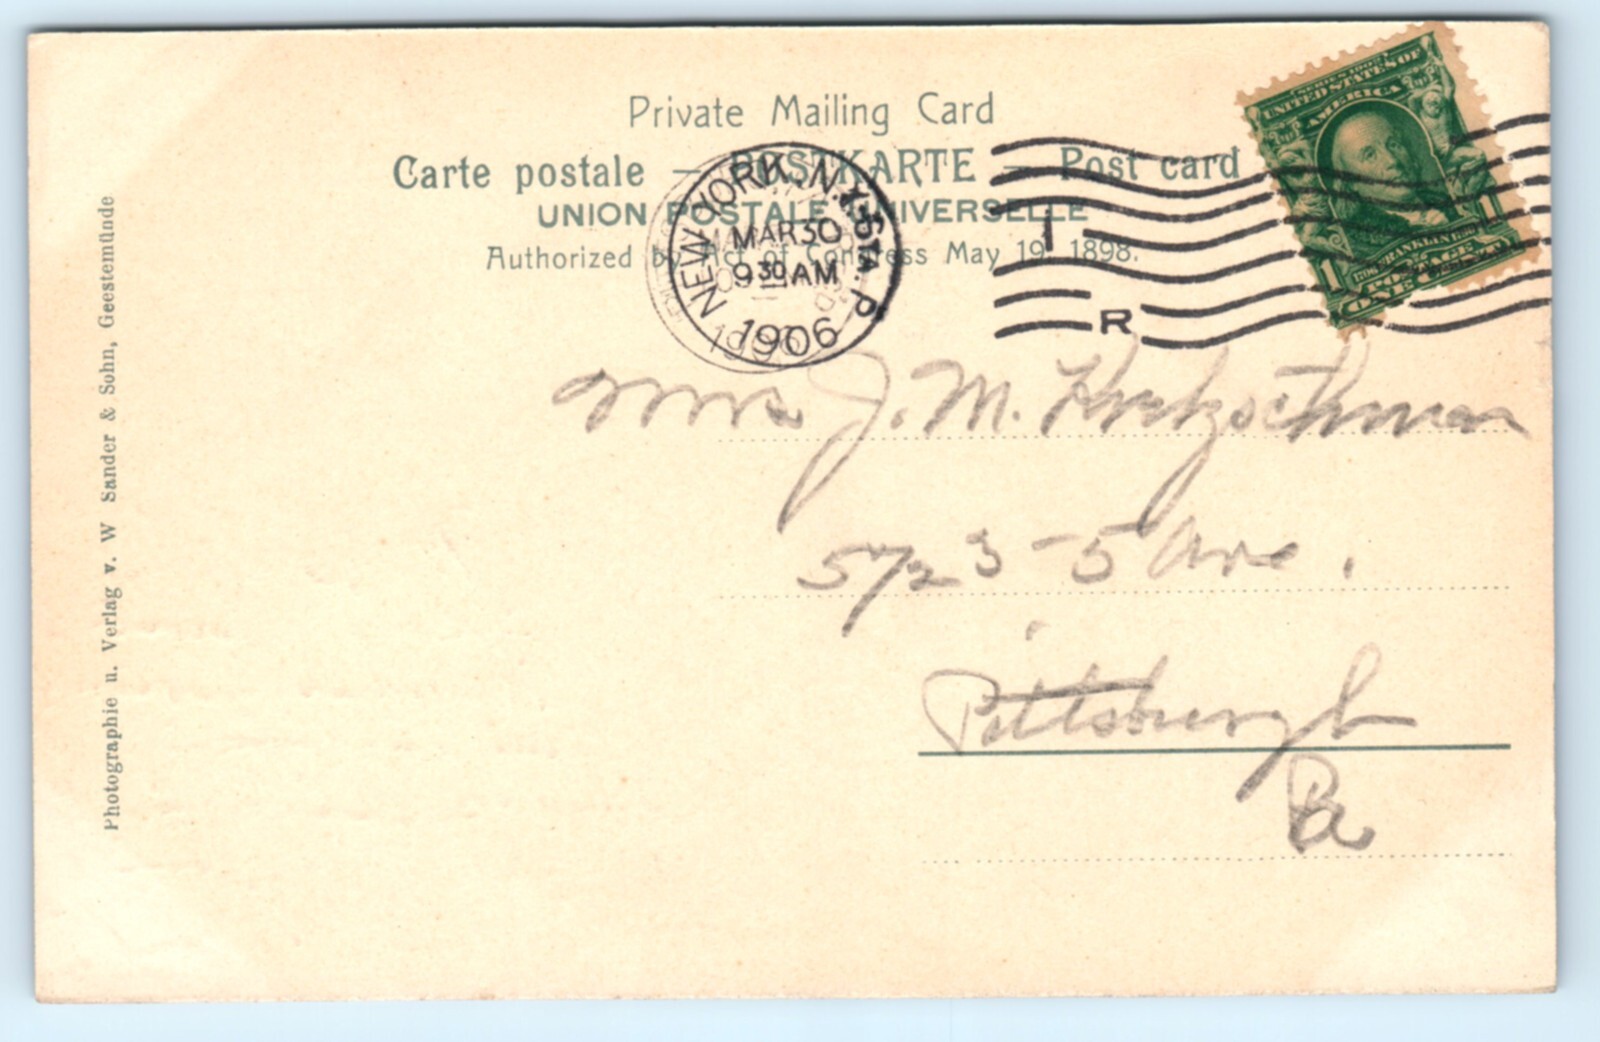 Private Mailing Card
Carte postale — POSTKARTE — Post card
UNION POSTALE UNIVERSELLE
Authorized by Act of Congress May 19. 1898.
NEW YORK, N.Y. STA. P
MAR 30
9 30 AM
1906
1
R
SERIES 1902
UNITED STATES OF
AMERICA
FRANKLIN
POSTAGE
1 ONE CENT 1
Mrs J. M. Kretzschmar
5723 - 5 Ave.
Pittsburgh
Pa
Photographie u. Verlag v. W Sander & Sohn, Geestemünde